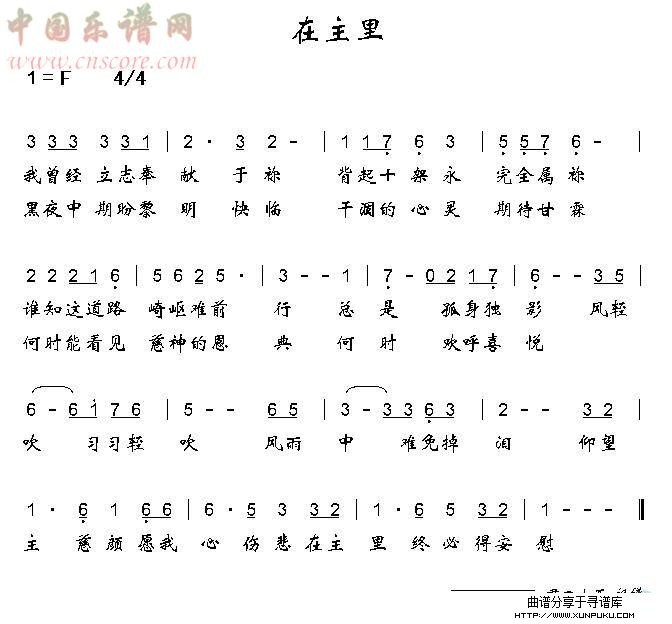 中国乐谱网
www.cnscore.com
在主里
1=F 4/4
3 3 3 3 3 1 | 2 · 3 2 - | 1 1 7 6 3 | 5 5 7 6 - |
我曾经立志奉献于祢 背起十架永完全属祢
黑夜中期盼黎明快临 干涸的心灵期待甘霖
2 2 2 1 6 | 5 6 2 5 · | 3 - - 1 | 7 - 0 2 1 7 | 6 - - 3 5 |
谁知这道路崎岖难前行总是孤身独影风轻
何时能看见慈神的恩典何时欢呼喜悦
6 - 6 1 7 6 | 5 - - 6 5 | 3 - 3 3 6 3 | 2 - - 3 2 |
吹习习轻吹风雨中难免掉泪仰望
1 · 6 1 6 6 | 6 · 5 3 3 2 | 1 · 6 5 3 2 | 1 - - - ‖
主慈颜愿我心伤悲在主里终必得安慰
曲谱分享于寻谱库
HTTP://WWW.XUNPUKU.COM